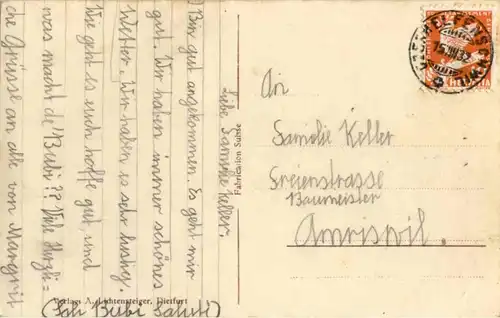 Liebe Familie Keller.
Bin gut angekommen. Es geht mir
gut. Wir haben immer schönes
Wetter. Wir haben es sehr lustig.
Wie geht es euch hoffe gut, und
was macht de' Bubi?? Viel Herzli=
che Grüsse an alle von Margrit
(Sali Bubi Salute)
Verlag: A. Lichtensteiger, Dietfurt
Fabrication Suisse
An
Familie Keller
Freienstrasse
Baumeister
Amriswil.
HELVETIA
15.VIII.32